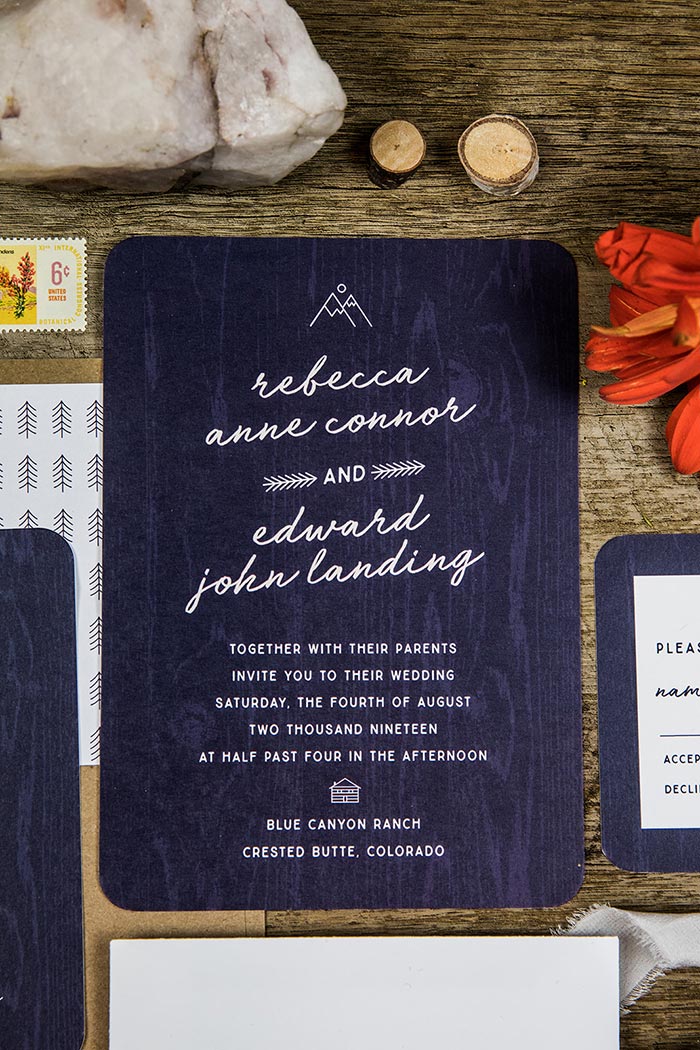 XI™ INTERNATIONAL
6c
UNITED
STATES
BOTANICAL
CONGRESS
rebecca
anne connor
AND
edward
john landing
TOGETHER WITH THEIR PARENTS
INVITE YOU TO THEIR WEDDING
SATURDAY, THE FOURTH OF AUGUST
TWO THOUSAND NINETEEN
AT HALF PAST FOUR IN THE AFTERNOON
BLUE CANYON RANCH
CRESTED BUTTE, COLORADO
PLEAS
nam
ACCEP
DECLI